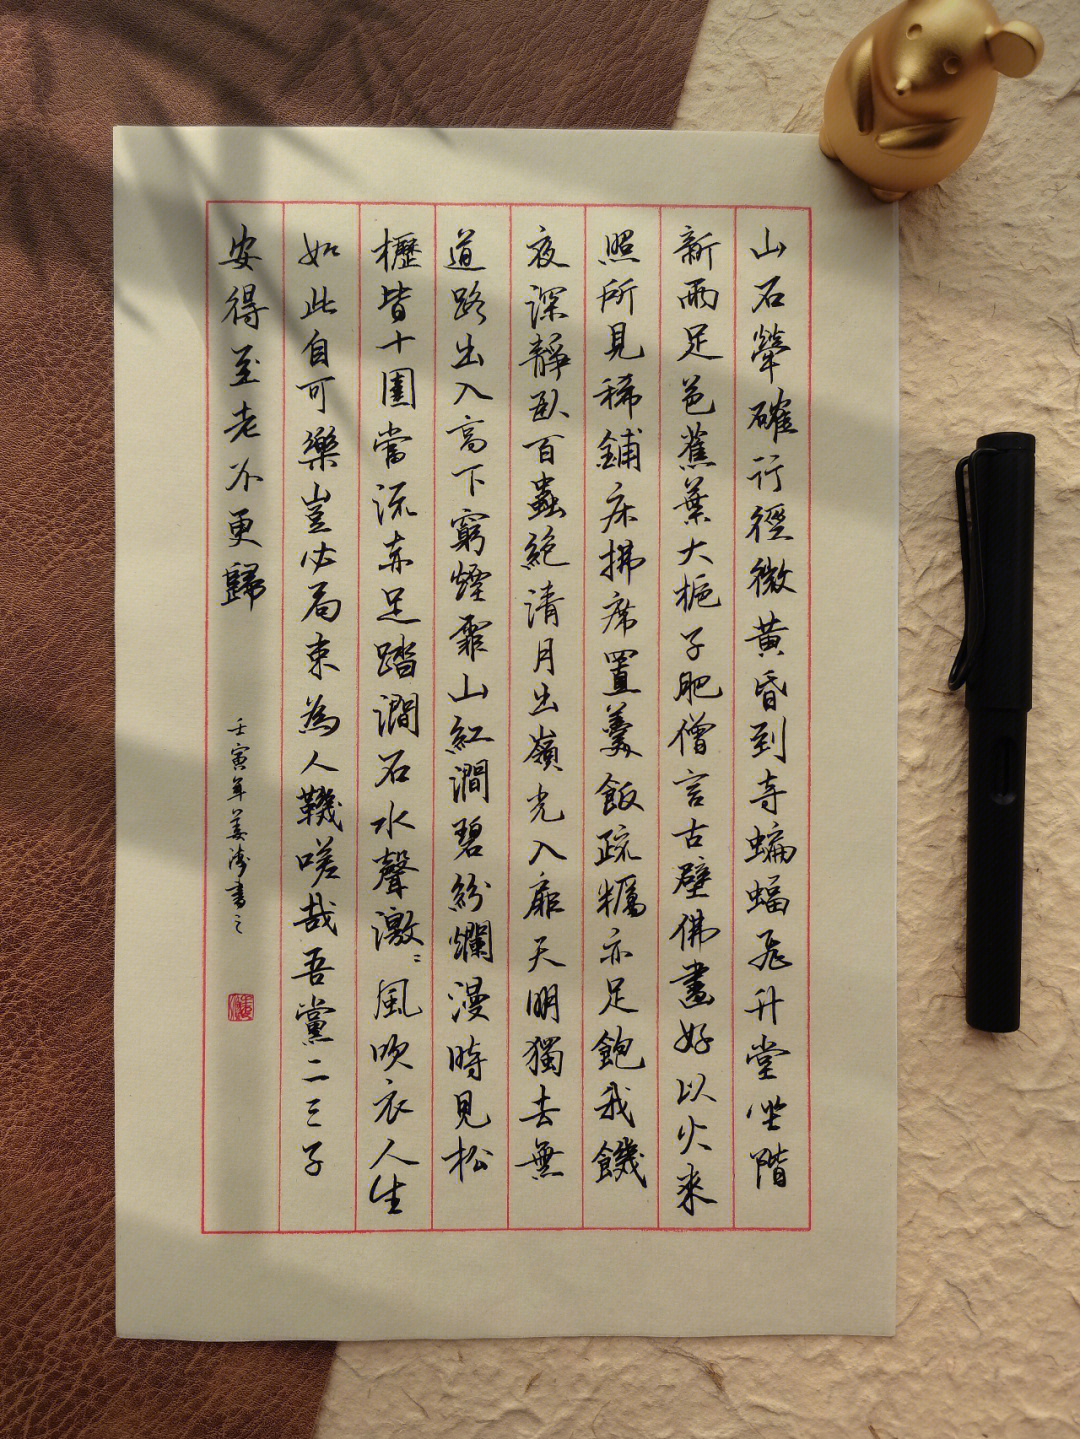 山石犖確行徑微黃昏到寺蝙蝠飛升堂坐階
新雨足芭蕉葉大梔子肥僧言古壁佛畫好以火來
照所見稀鋪床拂席置羹飯疏糲亦足飽我饑
夜深靜臥百蟲絕清月出嶺光入扉天明獨去無
道路出入高下窮煙霏山紅澗碧紛爛漫時見松
櫪皆十圍當流赤足踏澗石水聲激〻風吹衣人生
如此自可樂豈必局束為人鞿嗟哉吾黨二三子
安得至老不更歸
壬寅年姜濤書之